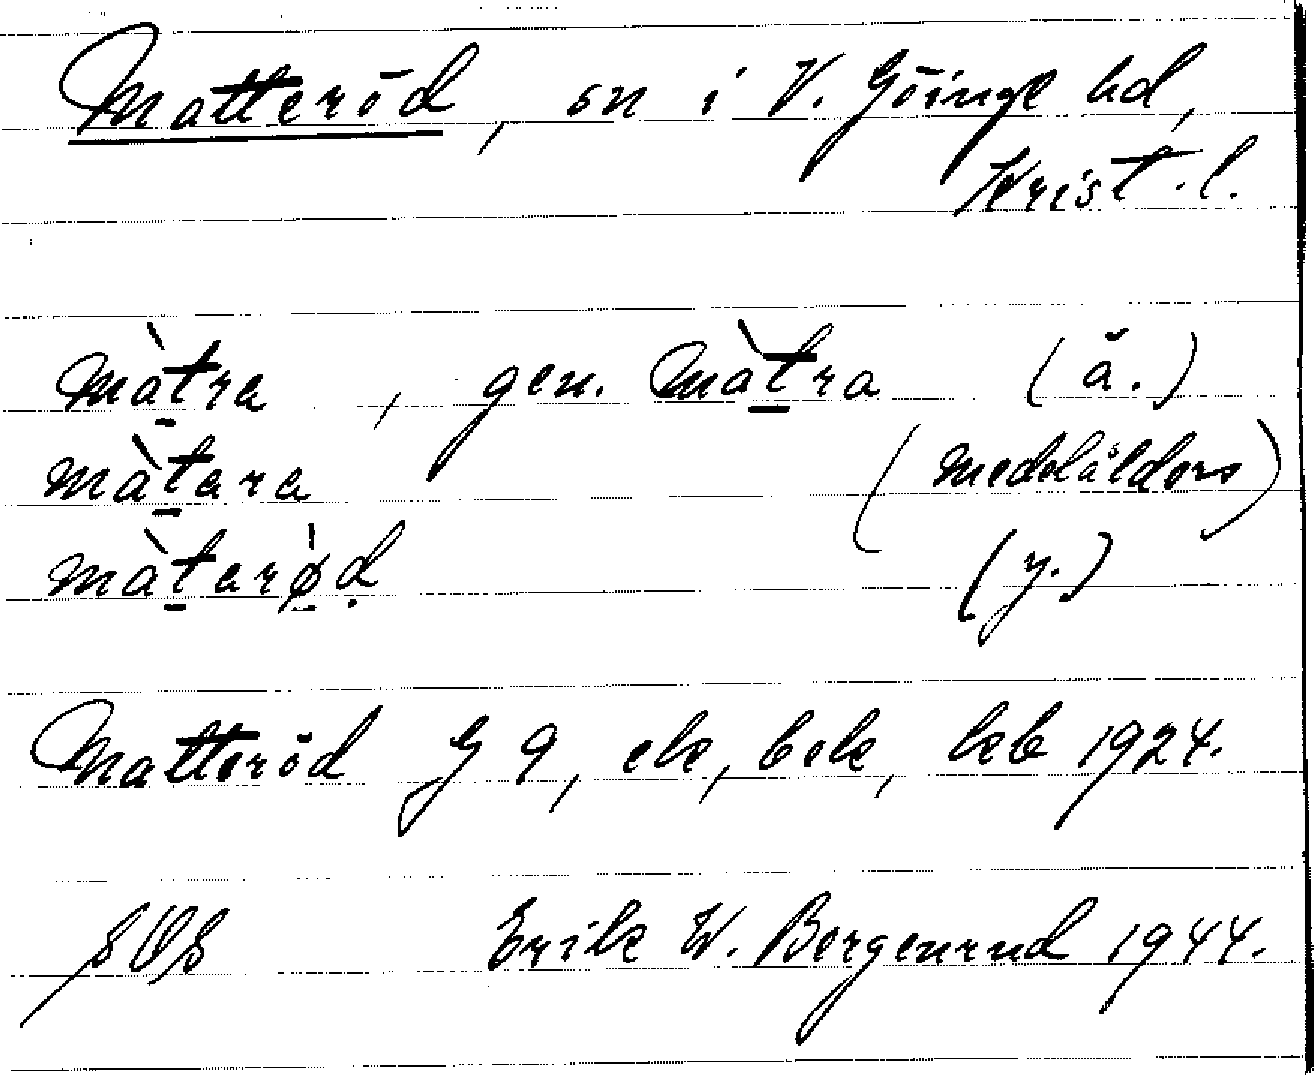 Matteröd, sn i V. Göinge hd,
Krist. l.
màt̠ra, gen. màt̠ra (ä.)
màt̠ara (medelålders)
màt̠arø̠̀ḍ (y.)
Matteröd G 9, ek, bek, kb 1924.
SOS Erik W. Bergenrud 1944.